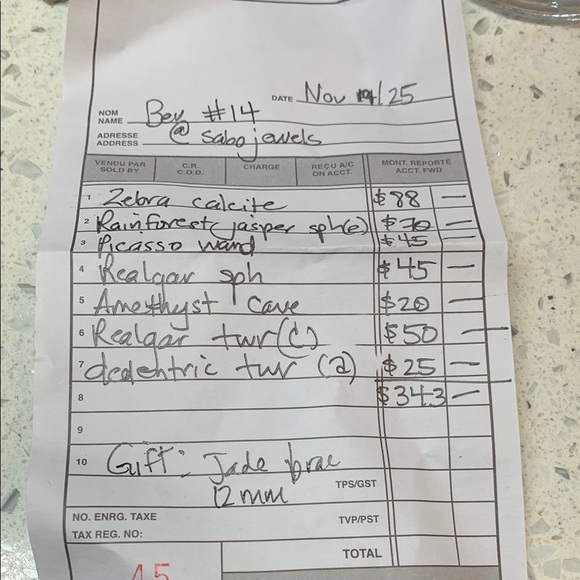 DATE Nov 14/25
NOM
NAME Bev #14
ADRESSE
ADDRESS @ sabojewels
VENDU PAR
SOLD BY
C.R.
C.O.D.
CHARGE
RECU A/C
ON ACCT.
MONT. REPORTE
ACCT. FWD
1 Zebra calcite $88 —
2 Rainforest jasper sph(e) $70 —
3 Picasso wand $45 —
4 Realgar sph $45 —
5 Amethyst cave $20 —
6 Realgar twr(c) $50 —
7 dedentric twr (a) $25 —
8 $343 —
9
10 Gift: Jade brac
12mm
TPS/GST
NO. ENRG. TAXE
TVP/PST
TAX REG. NO:
TOTAL
45